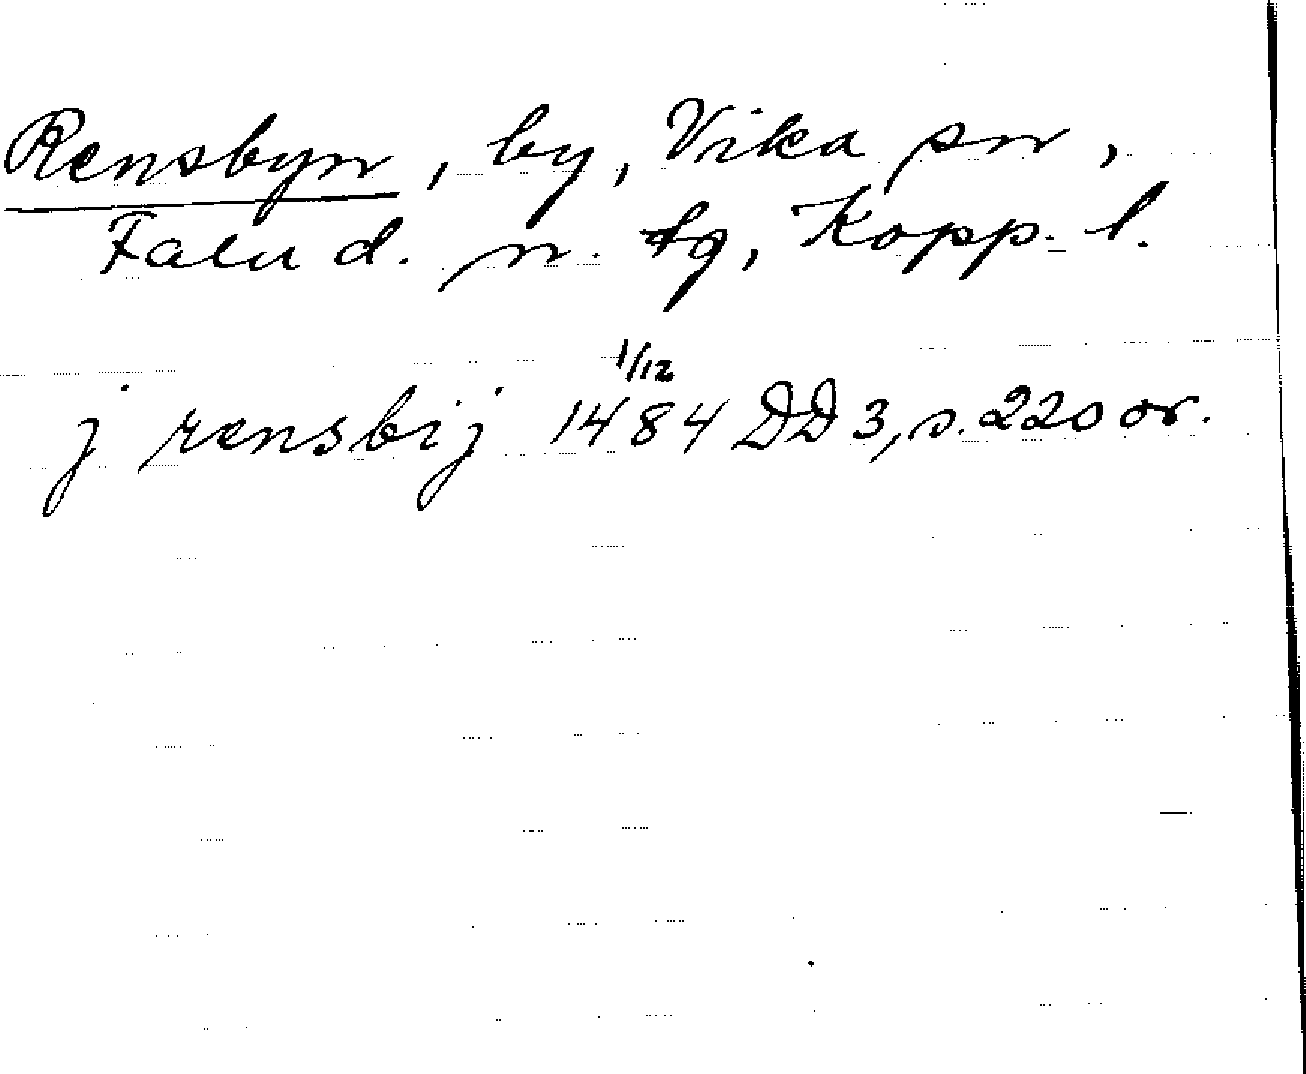 Rensbyn, by, Vika sn,
Falu d. n. tg, Kopp. l.
1/12
j rensbij 1484 DD 3, s. 220 or.